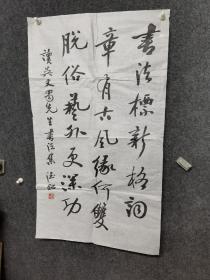 書法標新格詞
章有古風緣何雙
脫俗藝外更深功
讀吳丈蜀先生書法集